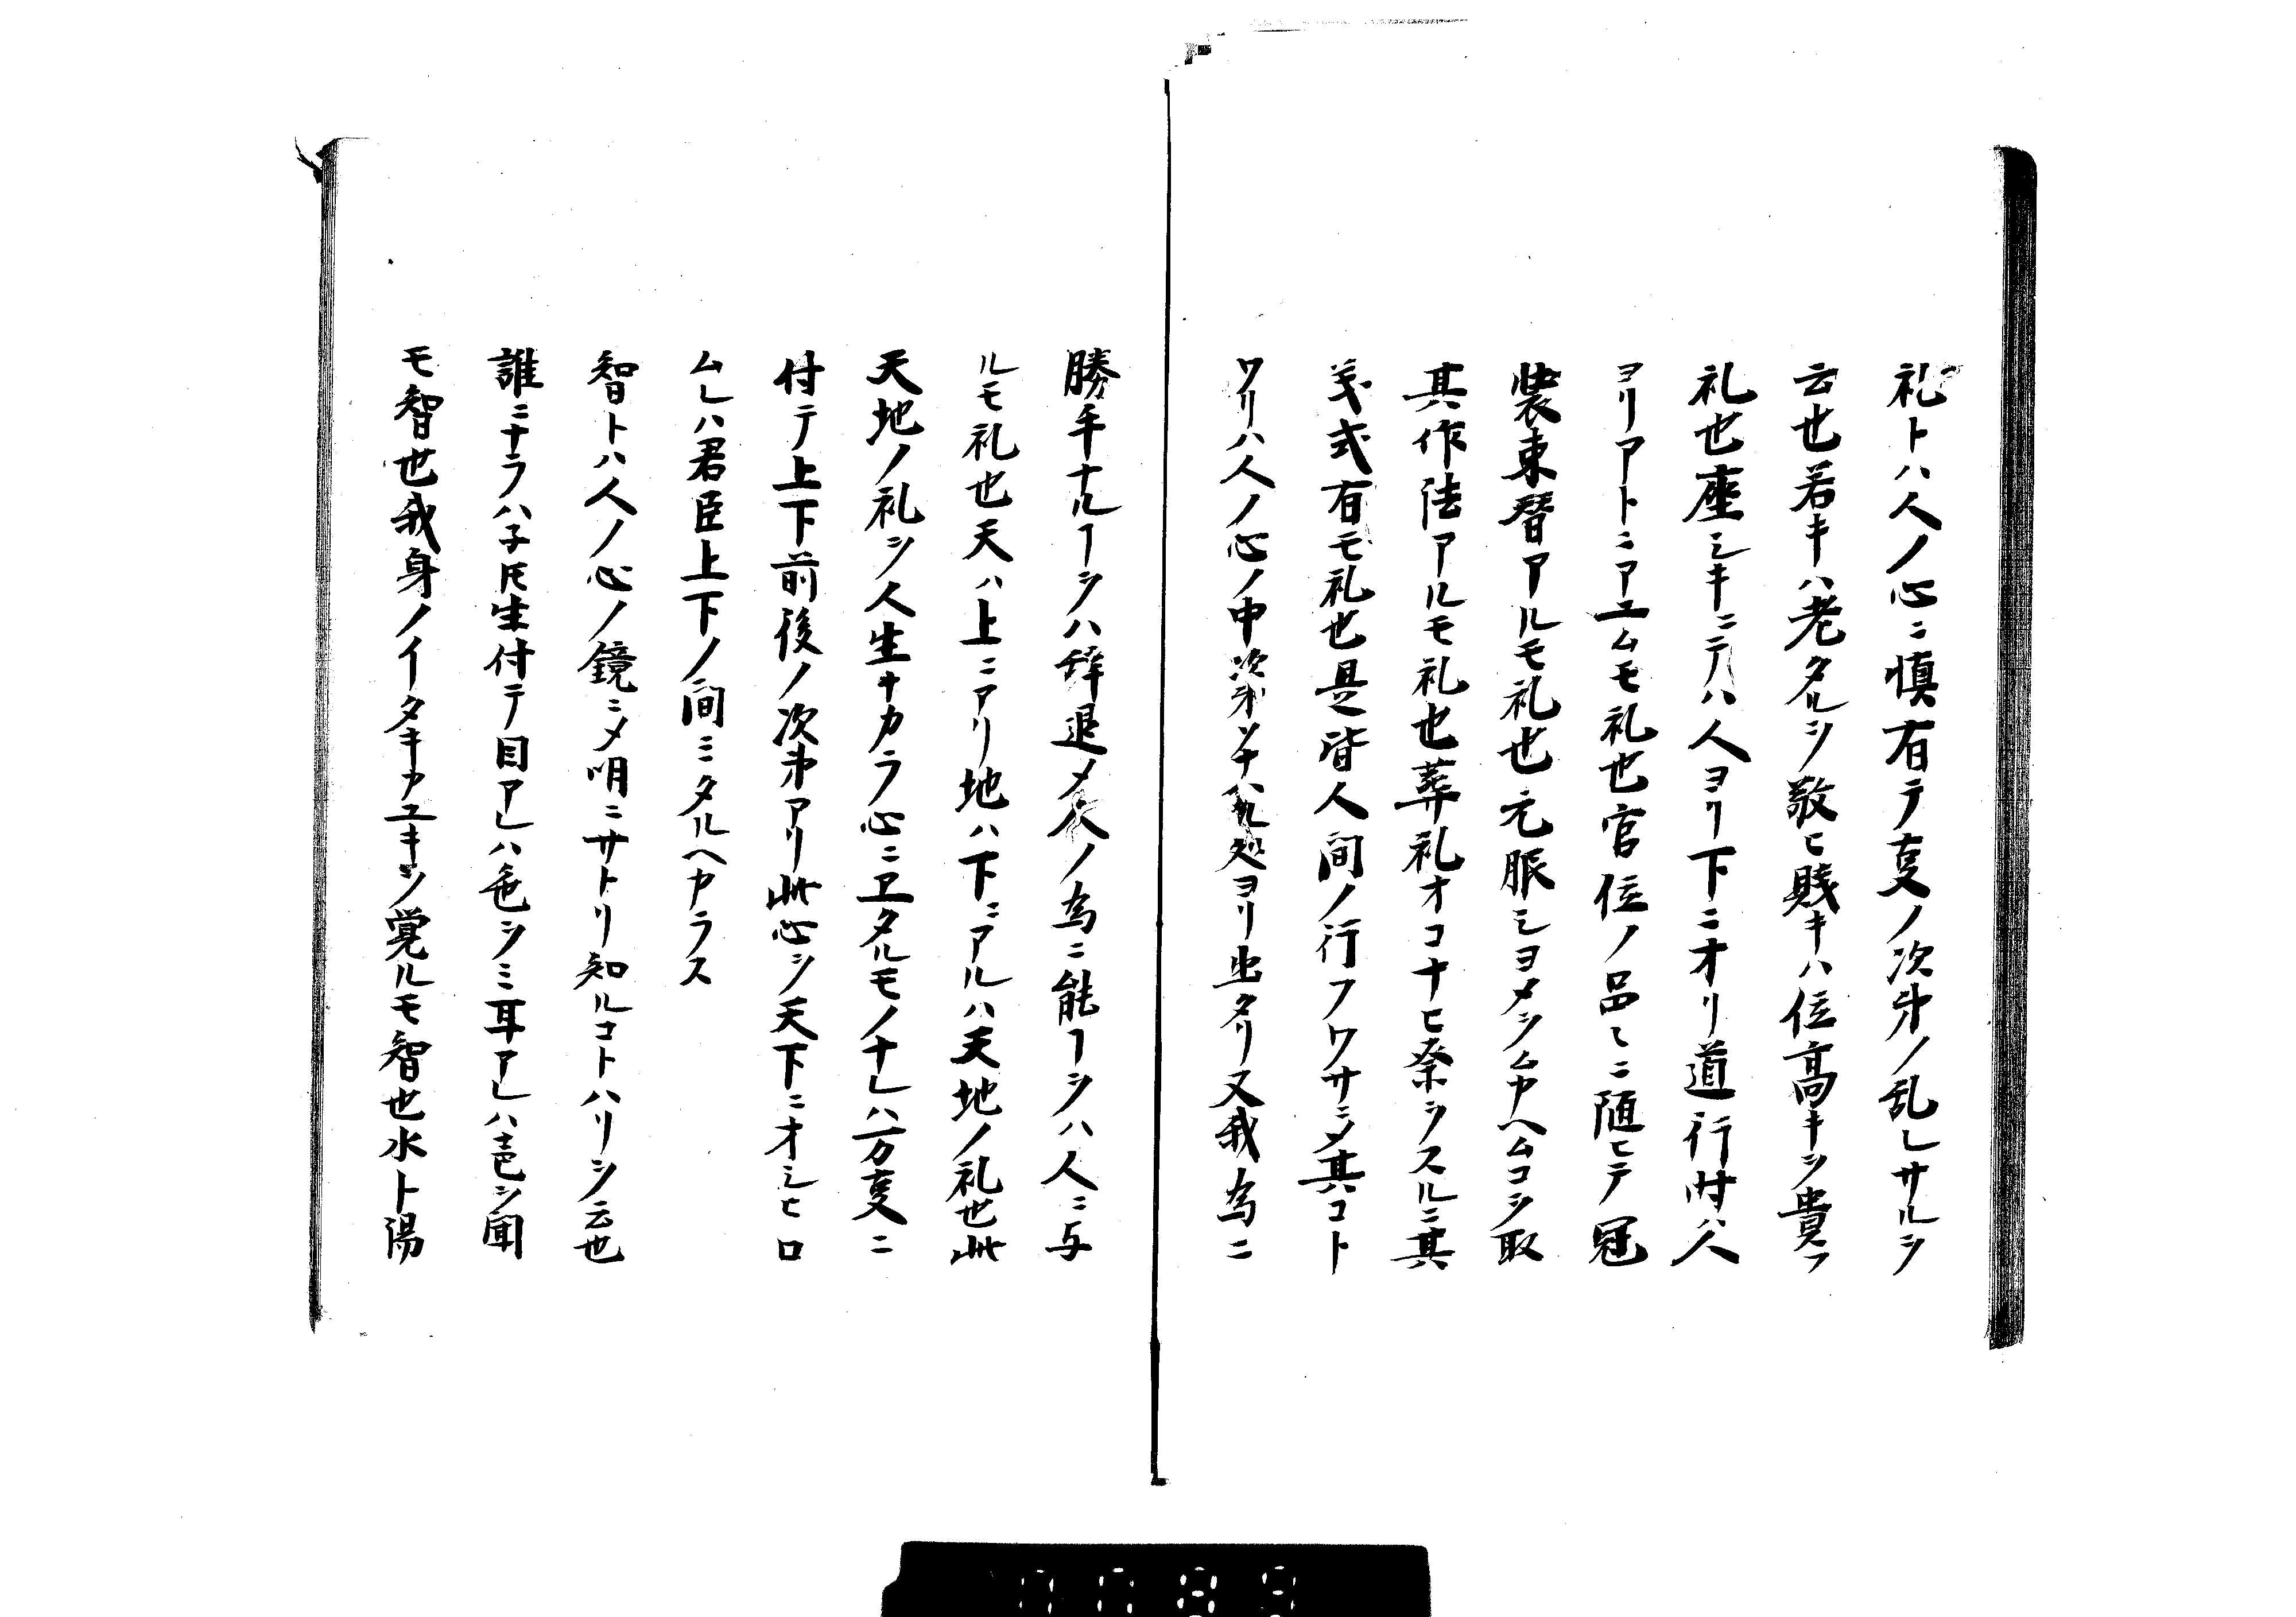 礼トハ人ノ心ニ慎有テ叓ノ次第ノ乱レサルヲ
云也若キハ老タルヲ敬ヒ賤キハ位高キヲ貴フ
礼也座シキニテハ人ヨリ下ニオリ道行時ハ人
ヨリアトニアユムモ礼也官位ノ品〻ニ随ヒテ冠
装束替アルモ礼也元服シヨメヲムカヘムコヲ取
其作法アルモ礼也葬礼オコナヒ祭ヲスルニ其
義式有モ礼也是皆人間ノ行フワサニメ其コト
ワリハ人ノ心ノ中次第ヨリ出タリ又我為ニ
勝手ナルヿヲハ辞退メ人ノ為ニ能ヿヲハ人ニ与
ルモ礼也天ハ上ニアリ地ハ下ニアルハ天地ノ礼也此
天地ノ礼ヲ人生ナカラ心ニヱタルモノナレハ万叓ニ
付テ上下前後ノ次第アリ此心ヲ天下ニオシヒロ
ムレハ君臣上下ノ間ミタルヘカラス
智トハ人ノ心ノ鏡ニメ明ニサトリ知ルコトハリヲ云也
誰ニナラハネ𪜈生付テ目アレハ色ヲミ耳アレハ声ヲ聞
モ智也我身ノイタキカユキヲ覚ルモ智也水ト陽